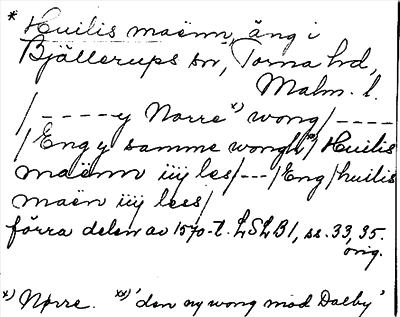 * Huilis maënn, äng i
Bjällerups sn, Torna hd,
Malm. l.
/ - - - - y Norre x) wong / - - - -
/ Eng y samme wongh xx) / Huilis
maënn iiij les / - - - / Eng / huilis
maën iiij lees /
förra delen av 1570-t. LSLB 1, ss. 33, 35.
orig.
x) Nørre. xx) 'den ny wong mod Dalby'